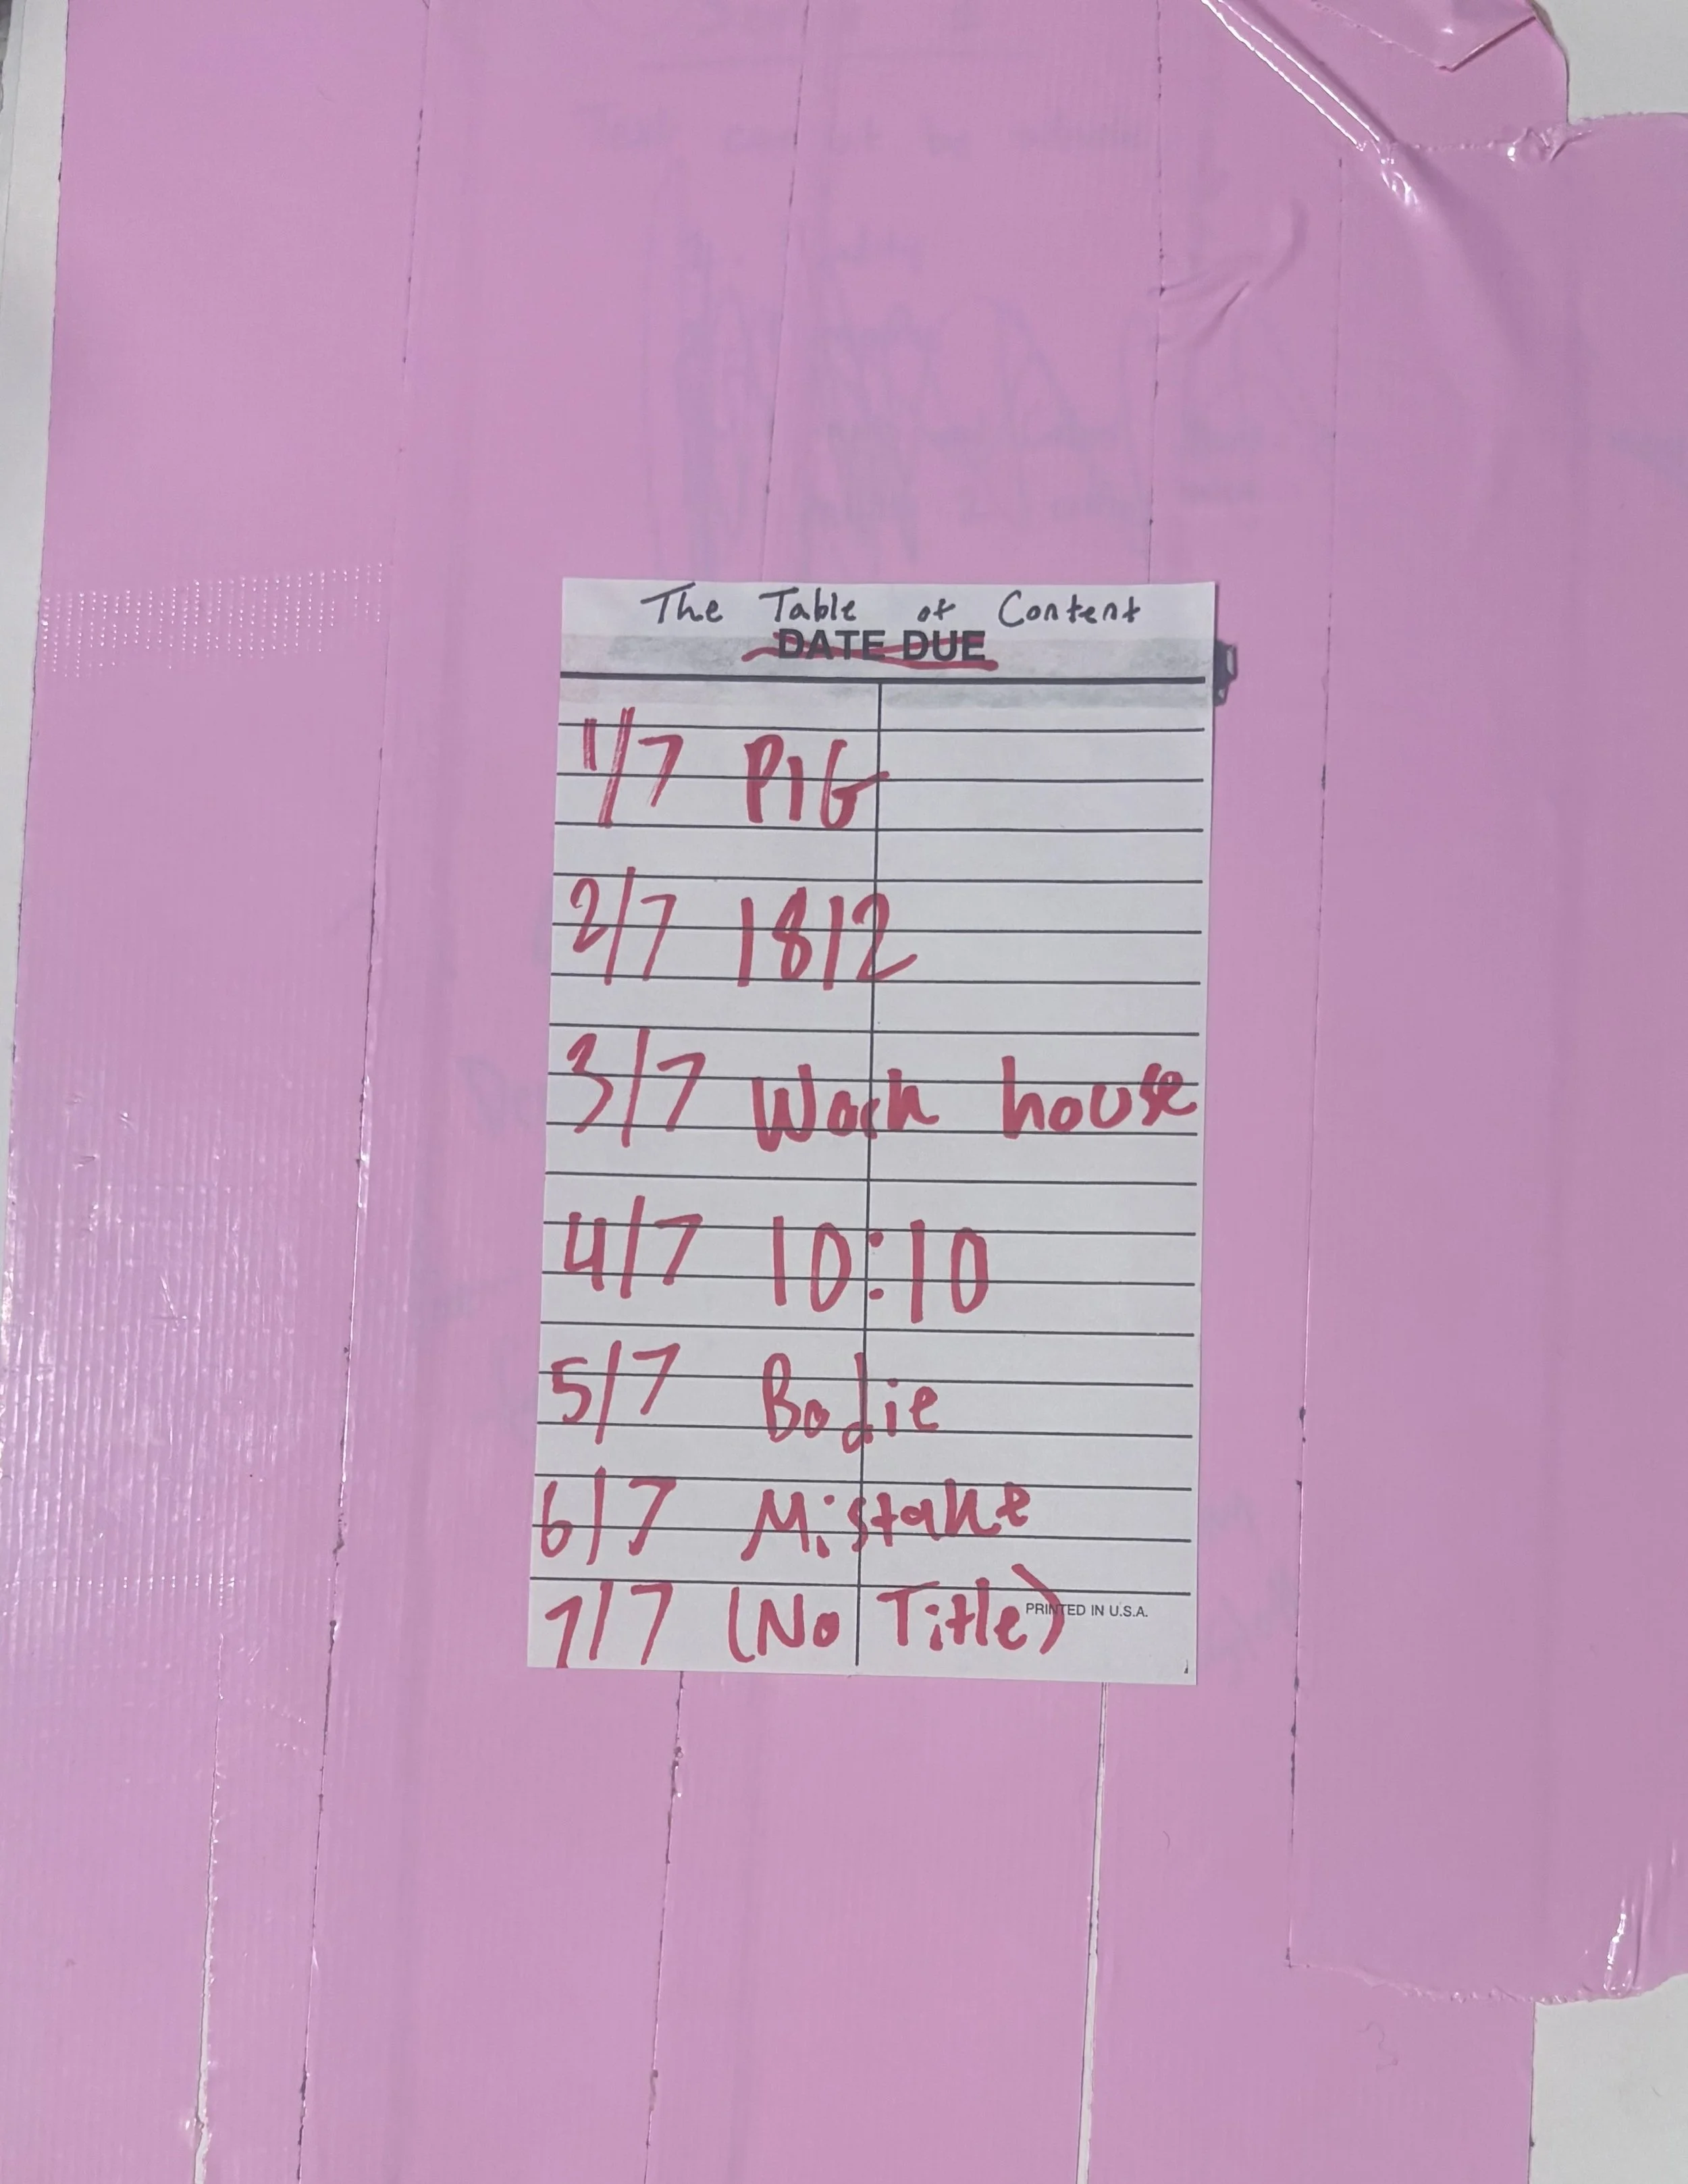 The Table of Content
DATE DUE
1/7 PIG
2/7 1812
3/7 Work house
4/7 10:10
5/7 Bodie
6/7 Mistake
7/7 (No Title)
PRINTED IN U.S.A.